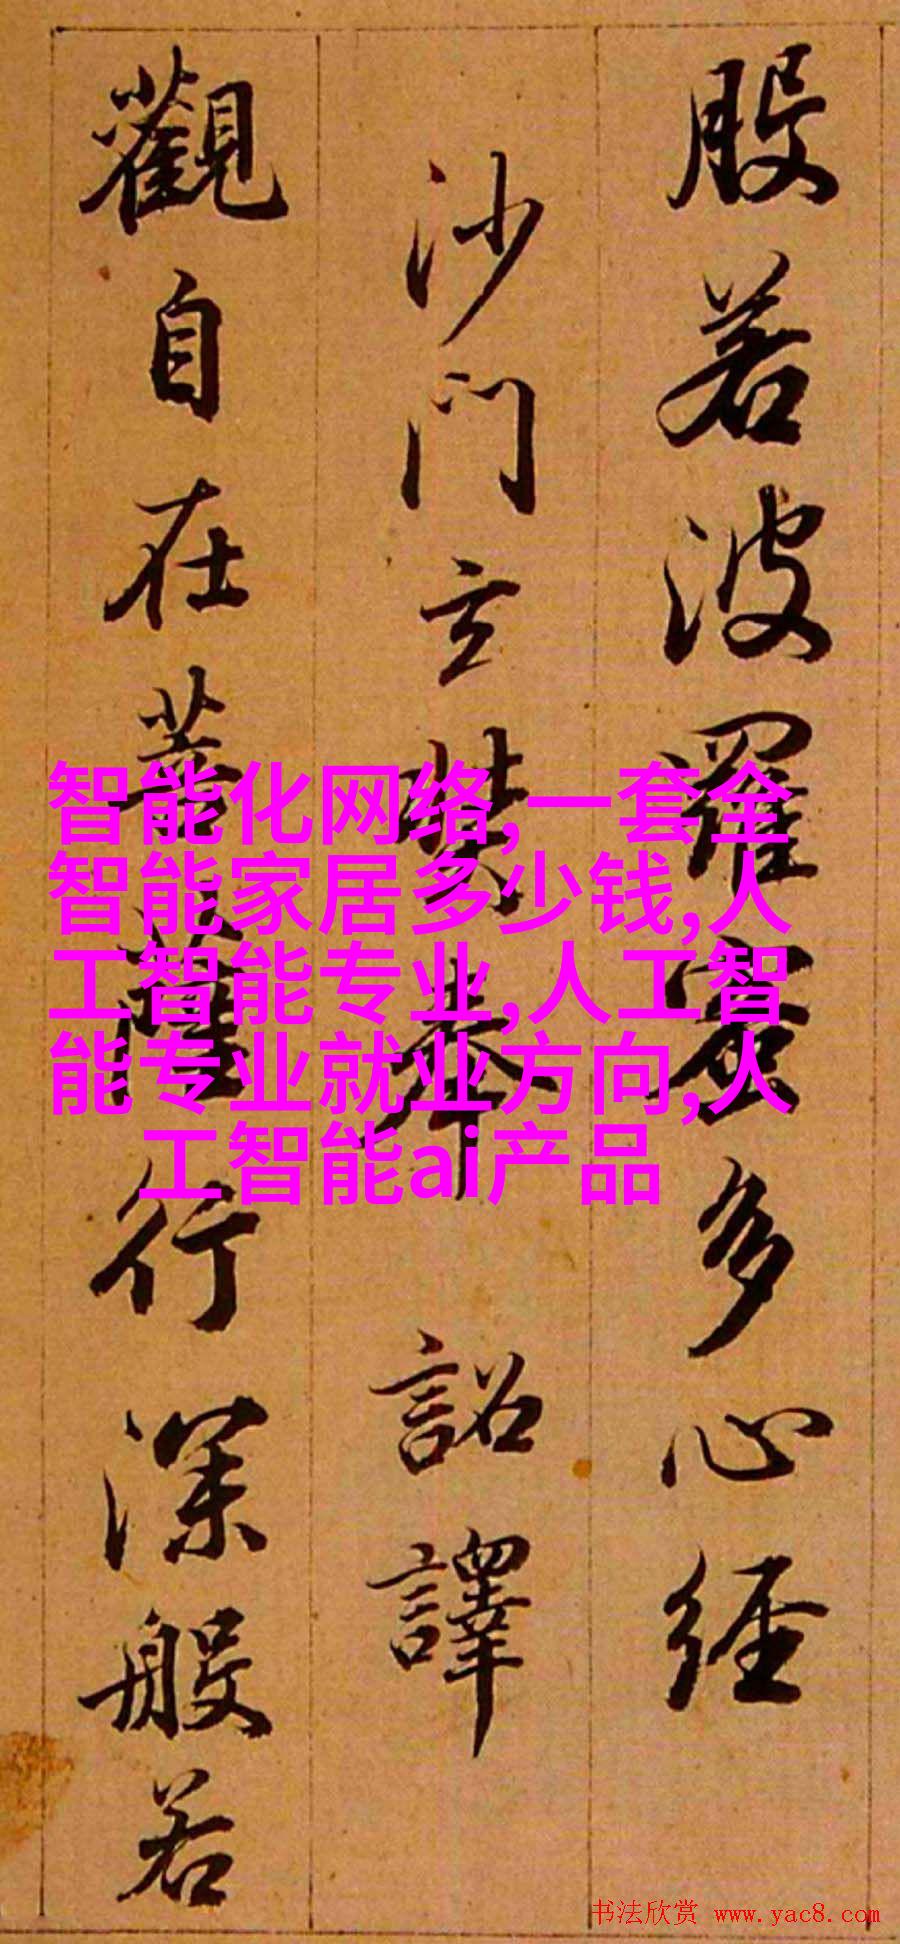 般若波羅蜜多心經
沙門玄奘奉 詔譯
觀自在菩薩行深般若
智能化网络,一套全
智能家居多少钱,人
工智能专业,人工智
能专业就业方向,人
工智能ai产品
书法欣赏 www.yac8.com